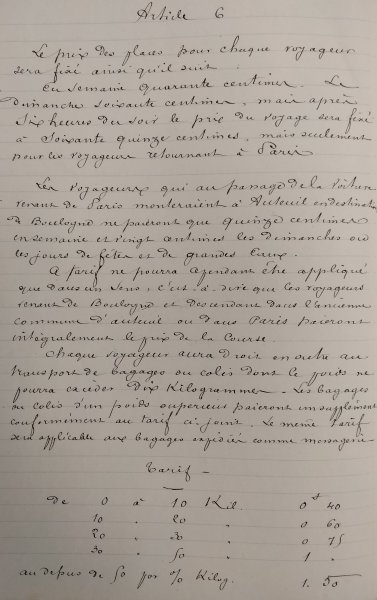 Article 6
Le prix des places pour chaque voyageur
sera fixé ainsi qu'il suit
En semaine quarante centimes. Le
Dimanche soixante centimes, mais après
Six heures du soir le prix du voyage sera fixé
à Soixante quinze centimes, mais seulement
pour les voyageurs retournant à Paris
Les voyageurs qui au passage de la voiture
venant de Paris monteraient à Auteuil en destination
de Boulogne ne paieront que quinze centimes
en semaine et vingt centimes les dimanches ou
les jours de fêtes et de grandes Eaux.
Ce tarif ne pourra cependant être appliqué
que dans un sens, c'est-à-dire que les voyageurs
venant de Boulogne et Descendant dans l'ancienne
commune d'auteuil ou dans Paris paieront
intégralement le prix de la Course.
Chaque voyageur aura Droit en outre au
transport de bagages ou colis dont le poids ne
pourra excéder Dix Kilogrammes. Les bagages
ou colis d'un poids supérieur paieront un supplément
conformément au tarif ci-joint. Le même tarif
sera applicable aux bagages expédiés comme messagerie
Tarif
De 0 à 10 Kil. 0f 40
10 " 20 " 0 60
20 " 30 " 0 75
30 " 50 " 1 "
au dessus de 50 por % Kilog. 1. 50